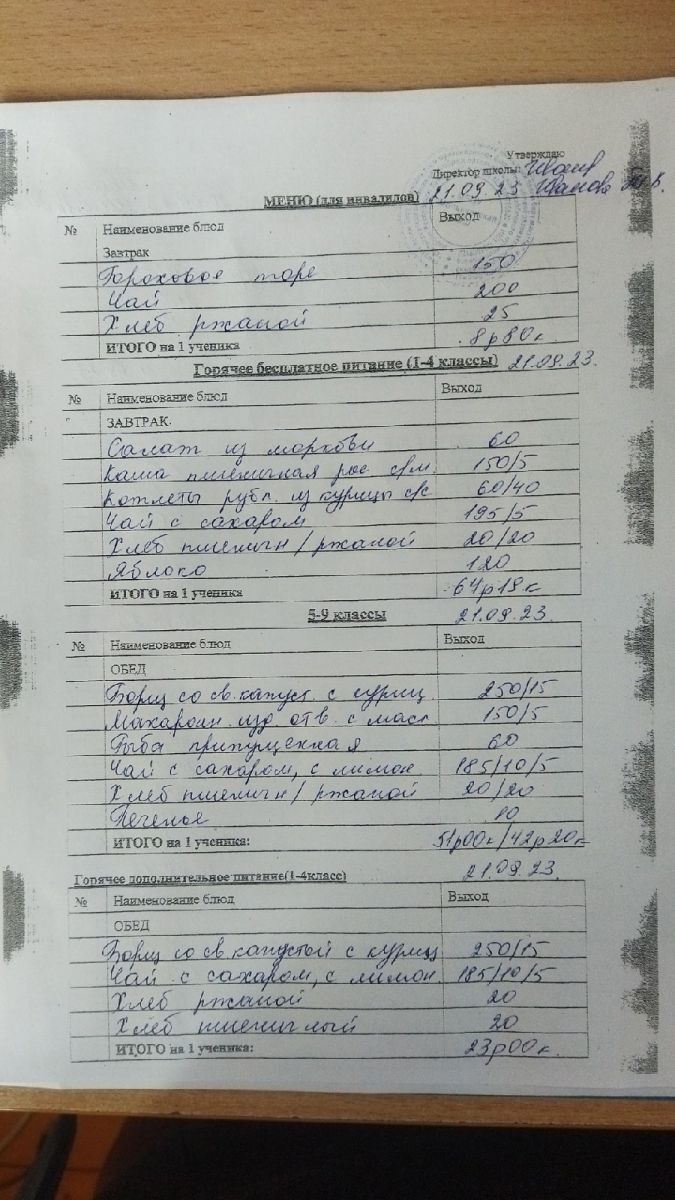 Утверждаю
Директор школы:
21.09.23 Иванова
МЕНЮ (для инвалидов)
№ Наименование блюд Выход
Завтрак
Гороховое пюре 150
Чай 200
Хлеб ржаной 25
ИТОГО на 1 ученика 8р80к.
Горячее бесплатное питание (1-4 классы) 21.09.23.
№ Наименование блюд Выход
ЗАВТРАК.
Салат из моркови 60
Каша пшеничная рас с/м. 150/5
Котлеты рубл. из курицы с/с 60/40
Чай с сахаром 195/5
Хлеб пшеничн/ржаной 20/20
Яблоко 120
ИТОГО на 1 ученика 64р19к
5-9 классы 21.09.23.
№ Наименование блюд Выход
ОБЕД
Борщ со св.капуст. с куриц. 250/15
Макарон. изд. отв. с масл 150/5
Рыба припущенная 60
Чай с сахаром, с лимон. 185/10/5
Хлеб пшеничн/ржаной 20/20
Печенье 10
ИТОГО на 1 ученика: 51р00к/42р20к
Горячее дополнительное питание(1-4класс) 21.09.23.
№ Наименование блюд Выход
ОБЕД
Борщ со св.капустой с куриц 250/15
Чай с сахаром, с лимон. 185/10/5
Хлеб ржаной 20
Хлеб пшеничный 20
ИТОГО на 1 ученика: 23р00к.